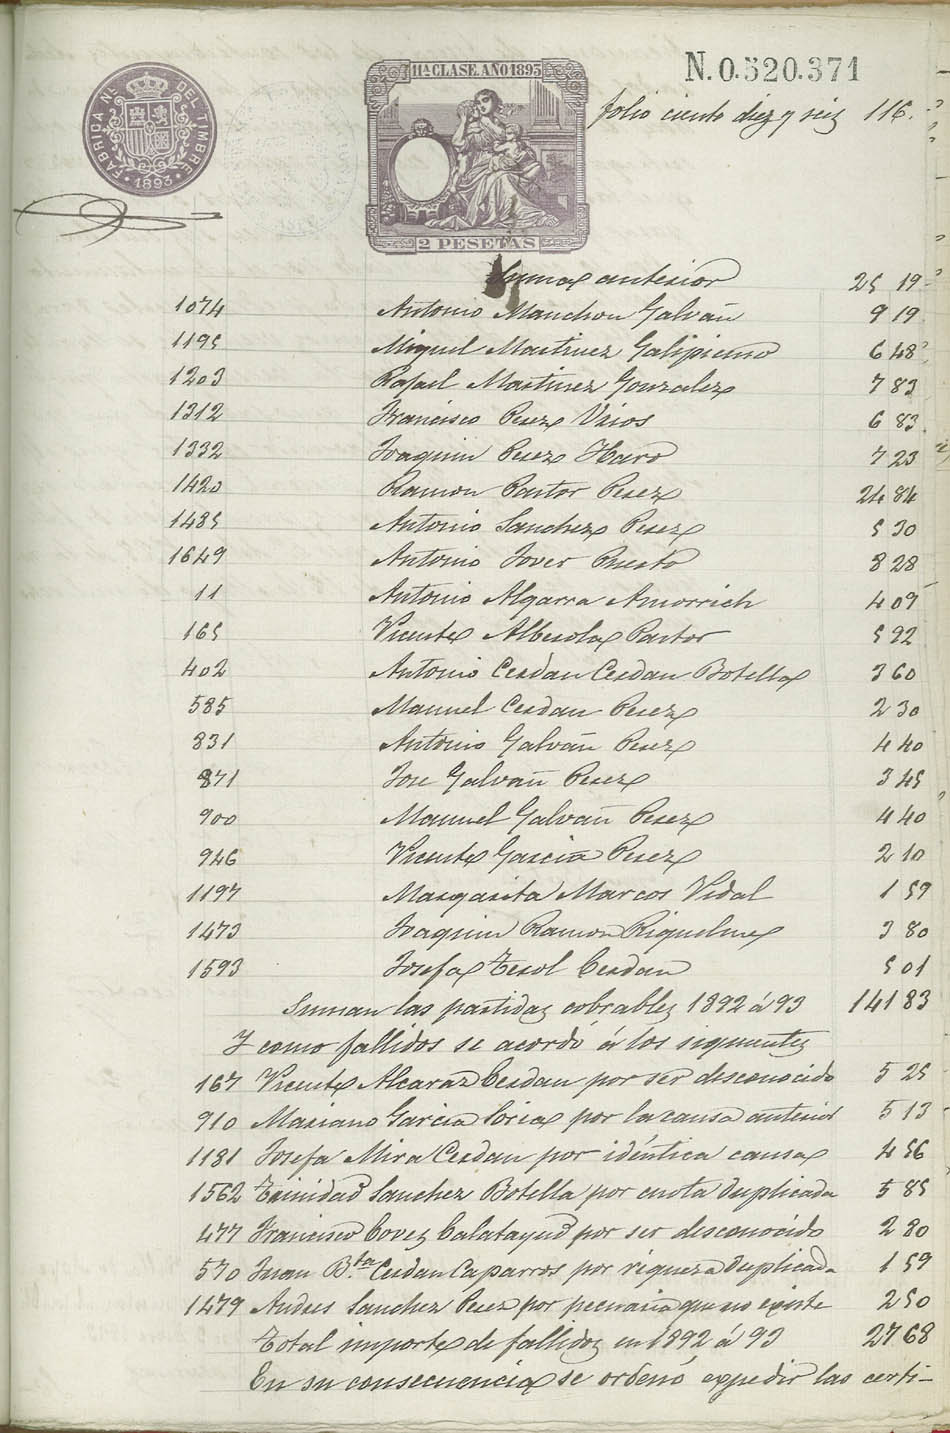 FABRICA NL. DEL TIMBRE
1893
11ª CLASE. AÑO 1893
2 PESETAS
N.0.520.371
folio ciento diez y seis 116.
Suma anterior 25 19
1074 Antonio Manchon Galvañ 9 19
1195 Miguel Martinez Galipienso 6 48
1203 Rafael Martinez Gonzalez 7 83
1312 Francisco Perez Vrios 6 83
1332 Joaquin Perez Haro 7 23
1420 Ramon Pastor Perez 24 84
1485 Antonio Sanchez Perez 5 30
1649 Antonio Jover Puerto 8 28
11 Antonio Algarra Amorrich 4 09
165 Vicente Alberola Pastor 5 92
402 Antonio Cerdan Cerdan Botella 3 60
585 Manuel Cerdan Perez 2 30
831 Antonio Galvañ Perez 4 40
871 Jose Galvañ Perez 3 45
900 Manuel Galvañ Perez 4 40
946 Vicente Garcia Perez 2 10
1197 Margarita Marcos Vidal 1 59
1473 Joaquin Ramon Riquelme 3 80
1593 Josefa Terol Cerdan 5 01
Suman las partidas cobrables 1892 á 93 141 83
Y como fallidos se acordó á los siguientes
167 Vicente Alcaraz Cerdan por ser desconocido 5 25
910 Mariano Garcia Soria por la causa anterior 5 13
1181 Josefa Mira Cerdan por idéntica causa 4 56
1562 Trinidad Sanchez Botella por cuota duplicada 5 85
477 Francisco Coves Calatayud por ser desconocido 2 80
570 Juan B.ta Cerdan Caparros por riqueza duplicada 1 59
1479 Andres Sanchez Perez por pecuaria que no existe 2 50
Total importe de fallidos en 1892 á 93 27 68
En su consecuencia se ordenó expedir las certi-